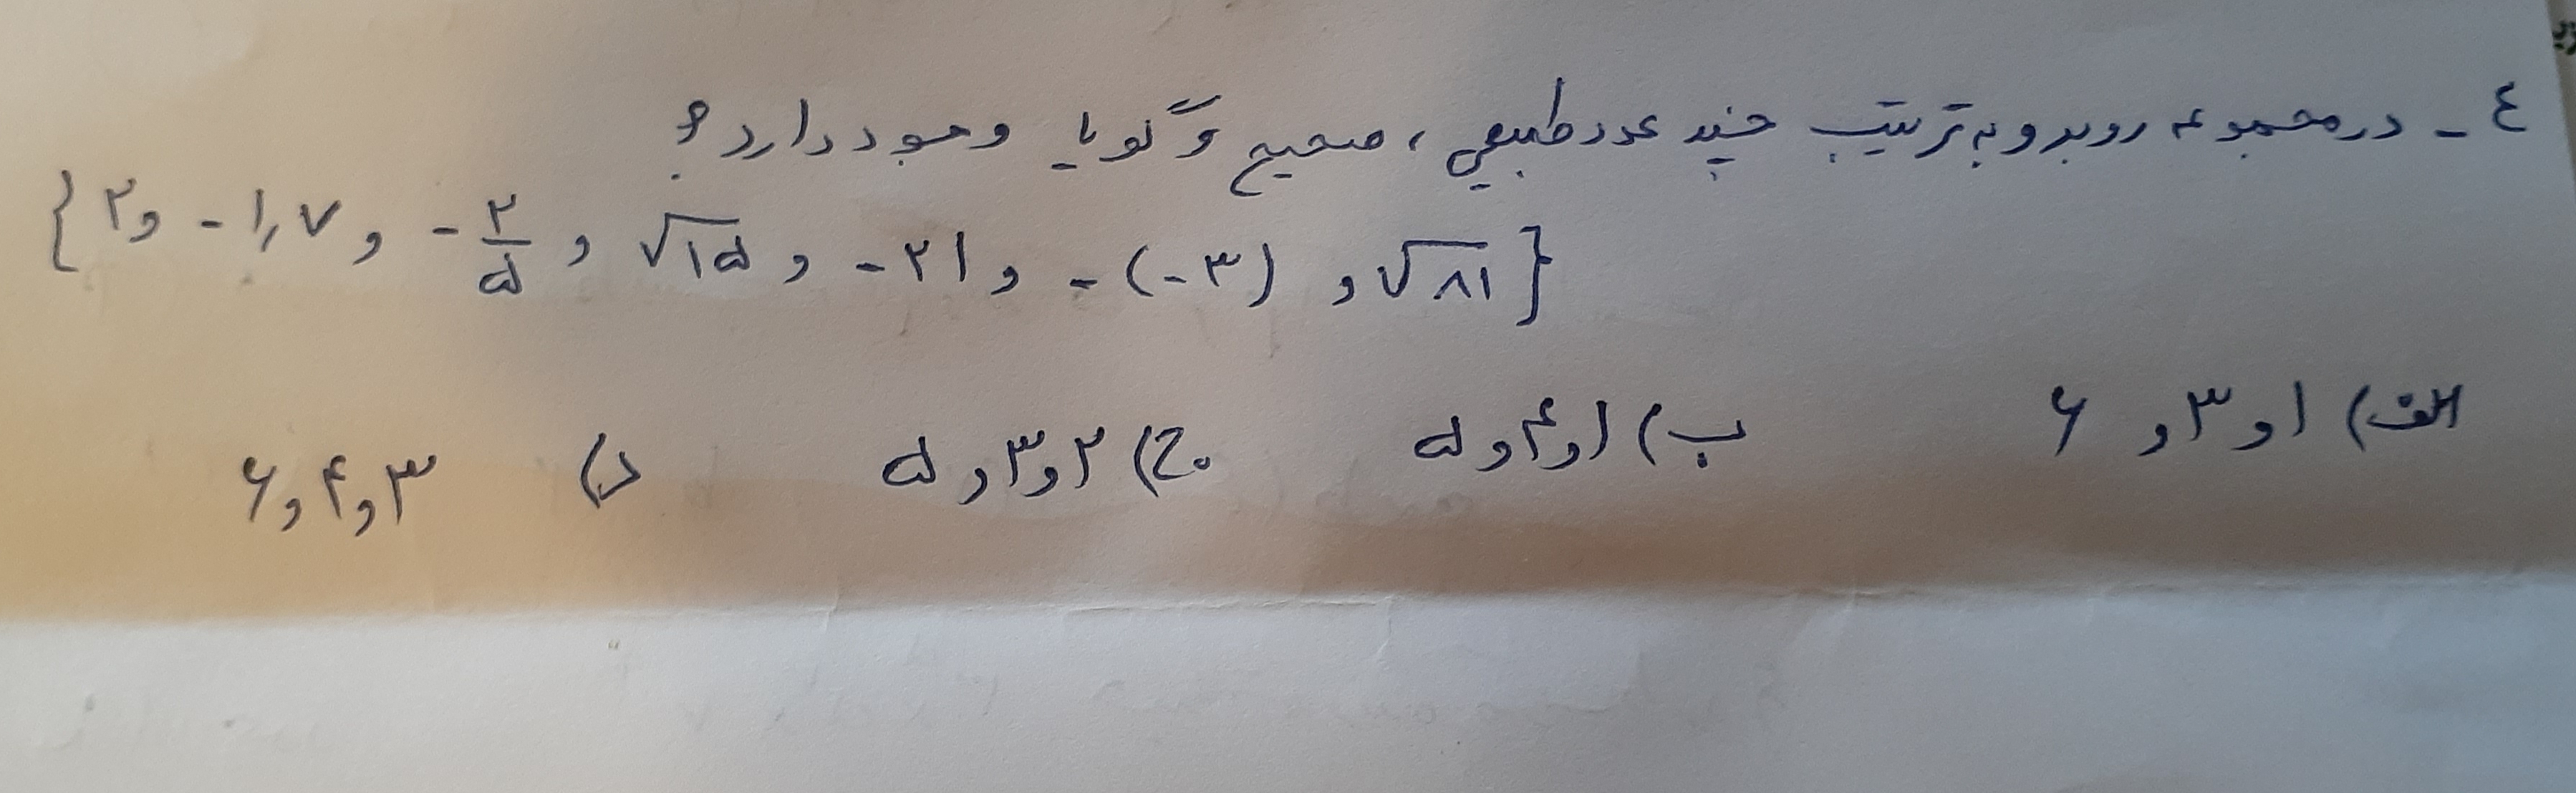 ٤ - در مجموعه روبرو به ترتیب چند عدد طبیعی ، صحیح و گویا وجود دارد ؟
{ ۲ و -۱٫۷ و -۲/۵ و √۱۵ و -۲۱ و -(-۳) و √۸۱ }
الف) ۱ و ۳ و ۶ ب) ۱ و ۴ و ۵ ج) ۲ و ۳ و ۵ د) ۳ و ۴ و ۶